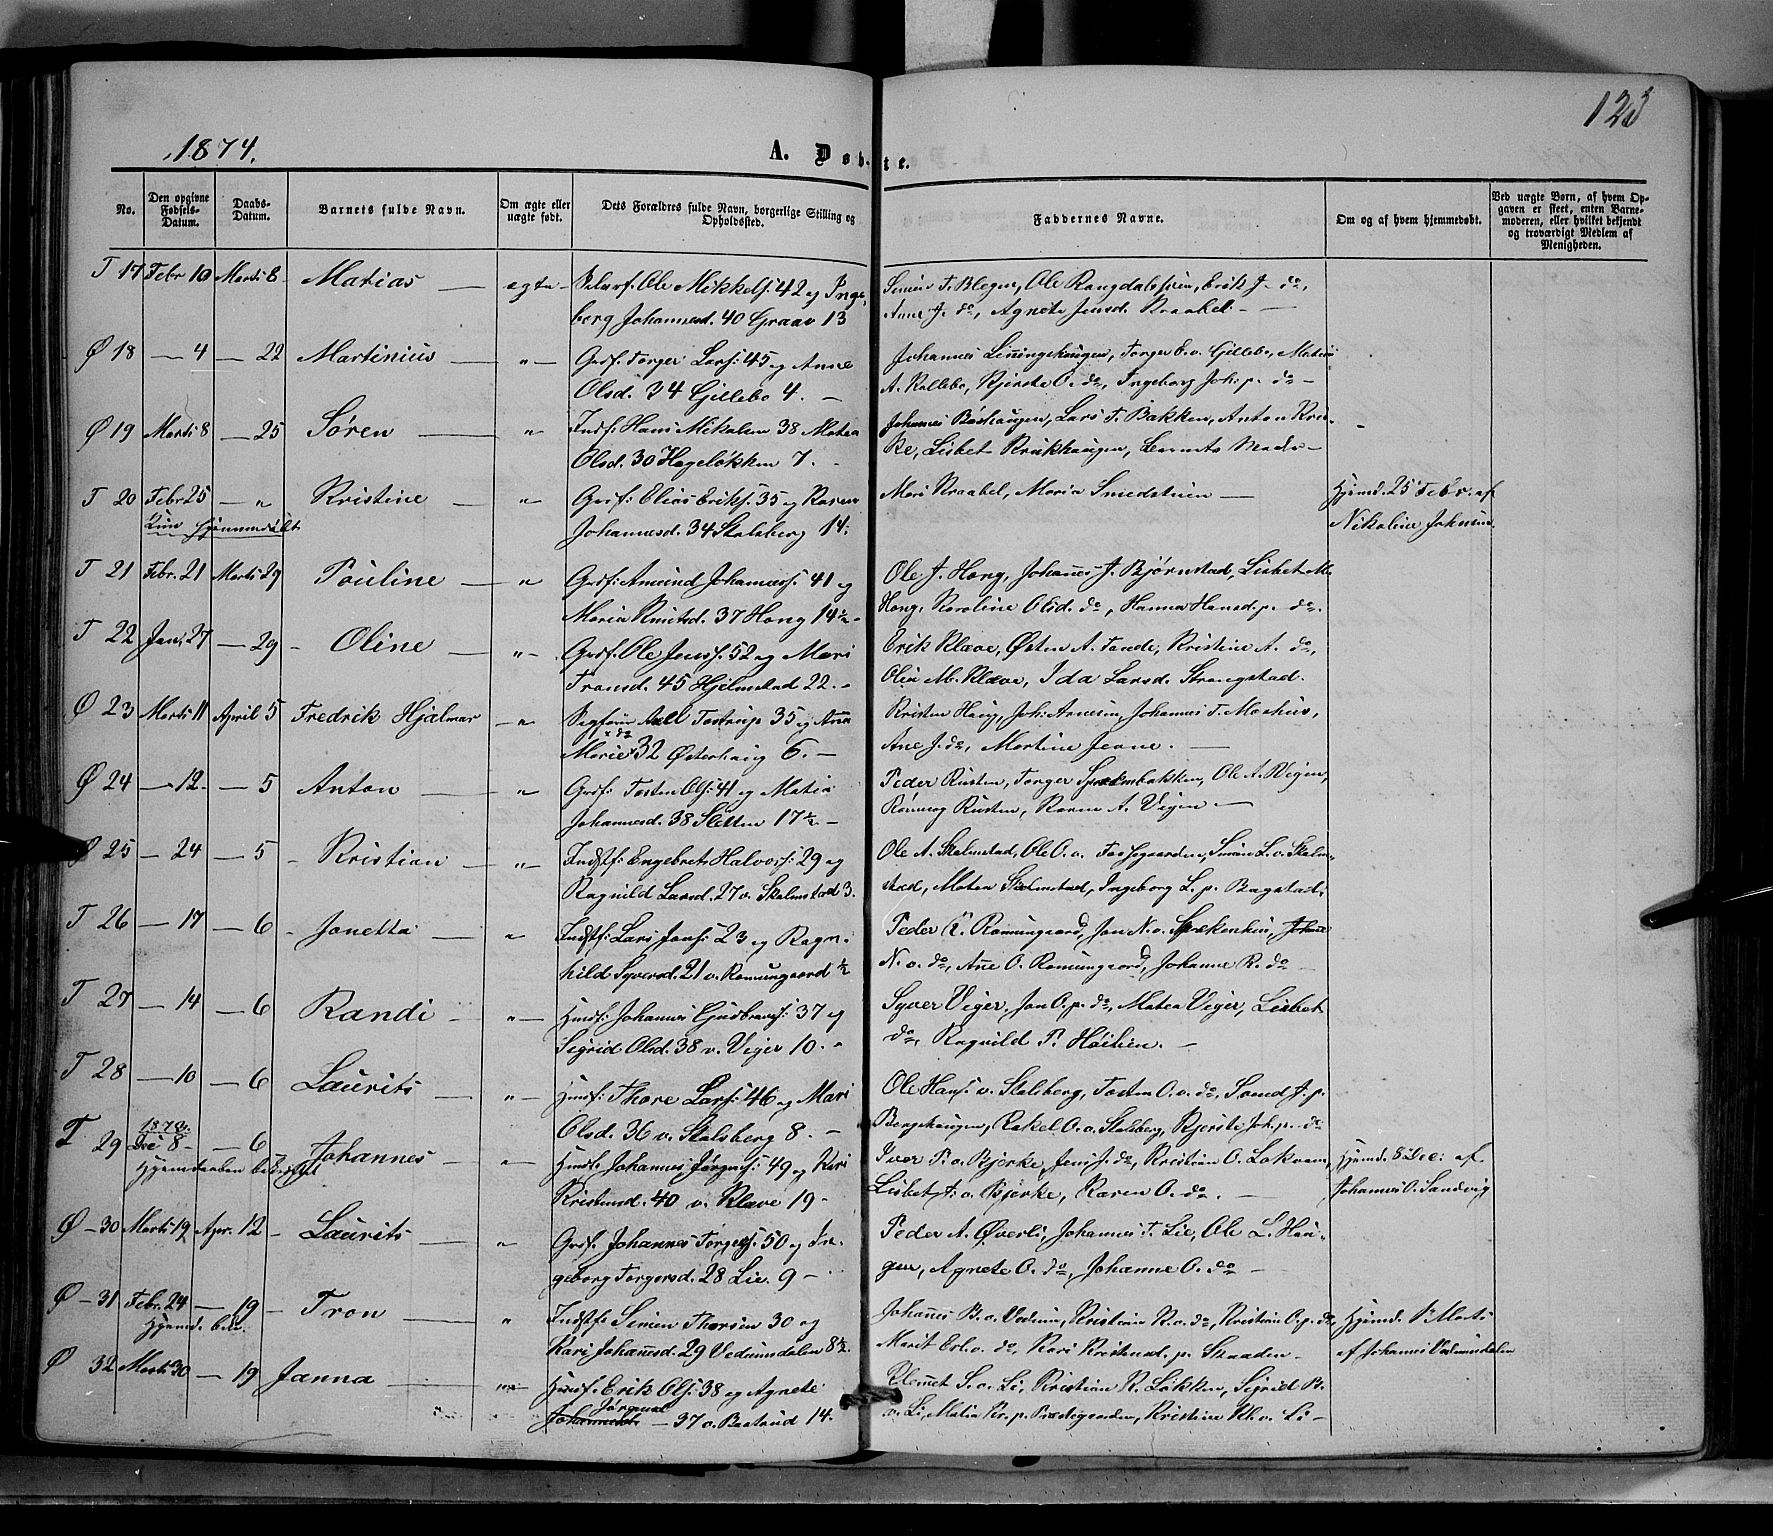 123
1874.
A. Døbte.
No.
Den opgivne Fødsels-Datum.
Daabs-Datum.
Barnets fulde Navn.
Om ægte eller uægte født.
Dets Forældres fulde Navn, borgerlige Stilling og Opholdssted.
Faddernes Navne.
Om og af hvem hjemmedøbt.
Ved uægte Børn, af hvem Opgaven er skeet, enten Barnemoderen, eller hvilket bekjendt og troværdigt Medlem af Menigheden.
T 17 Febr 10 Marts 8 Matias — ægte Selvf. Ole Mikkels: 42 og Inge-
berg Johannesd. 40 Graav 13
Ole Rangdalsstuen, Erik J. do,
Anne J. do, Agnete Jensd. Kraabel. —
Ø 18 — 4 — 22 Martinius — " — Grdf. Torger Lars: 45 og Anne
Olsd. 34 Gillebo 4. —
Johannes Linningshaugen, Torger E. v. Gillebo, Matias
A. Kollebo, Kjersti O. do, Ingeborg Joh: p. do —
Ø 19 Marts 8 — 25 Søren — " Indf: Hans Mikalsen 38 Matea
Olsd. 30 Hageløkken 7. -
Johannes Bøshaugen, Lars T. Bakken, Anton Kruk-
ke, Lisbet Krukhaugen, Barnets Moder —
T 20 Febr 25 — " Kristine — " Grdf: Elias Eriks: 35 og Karen
Kun hjemmedøbt
Johannesd. 34 Stalsberg 14:
Mari Kraabel, Maria Smedstuen —
Hjemd. 25 Febr. af
Nikoline Johnsen.
T 21 Febr. 21 Marts 29 Pauline — " Grdf: Amund Johanness: 41 og
Maria Knutsd. 37 Hong 14½ -
Ole J. Hong, Johannes J. Bjørnstad, Lisbet M.
Hong, Karoline Olsd. do, Hanna Hansd. p. do.
T 22 Jan. 27 — 29 - Oline — " — Grdf: Ole Jens: 52 og Mari
Tronsd. 45 Hjelmstad 22. -
Erik Klæve, Østen A. Tande, Kristine A. do,
Olia M. Klæve, Ida Larsd. Strangstad.
Ø 23 Marts 11 April 5 Fredrik Hjalmar " Aall Tostrup 35 og Anna
Marie 32 Østerhaug 6. —
Kristen Haug, Joh: Arnesen, Johannes T. Moshus,
Ane J. do, Martine Jevne. —
Ø 24 — 12 — 5 Anton — " Grdf: Tosten Ols: 41 og Matia
Johannesd. 38 Sletten 17½ —
Peder Rusten, Torger Sprækenbakken, Ole A. Vigen,
Rønnog Rusten, Karen A. Vigen —
Ø 25 — 24 — 5 - Kristian — " Indstf: Engebret Halvors: 29 og
Ragnild Larsd. 27 v. Skalmstad 3.
Ole A. Skalmstad, Ole O. v. Fossegaarden, Simen L. v. Skalm-
stad, Matea Skalmstad, Ingeborg L. p. Bagstad.
T 26 — 17 — 6 - Jonetta — " Indstf: Lars Jons: 23 og Ragn-
hild Syversd. 21 v. Romundgaard ½
Peder R. Romundgaard, Jon N. v. Sprækenhus,
N. v. do, Ane O. Romundgaard, Johanne R. do
T 27 — 14 — 6 Randi — " — Husf: Johannes Gudbrands: 37 og
Sigrid Olsd. 38 v. Viger 10. -
Syver Viger, Jon O. p. do, Matea Viger, Lisbet
do, Ragnild P. Høistuen. —
T 28 — 10 — 6 Laurits — " — Husf: Thore Lars: 46 og Mari
Olsd. 36 v. Stalsberg 8. —
Ole Hans: v. Stalsberg, Tosten O. v. do, Svend J. p.
Bergehaugen, Rakel O. v. Stalsberg, Kjersti Joh: p. do
T 29 1873. Dec 8 — 6 Johannes — " Husf: Johannes Jørgens: 49 og Kari
Hjemdaaben
Kristensd. 40 v. Klæve 19 -
Iver P. v. Bjerke, Jens J. do, Kristian O. Lokvam,
Lisbet v. Bjerke, Karen O. do. —
Hjemd. 8 Dec: af
Johannes O. Sandvig
Ø - 30 Marts 19 Apr. 12 - Laurits — " Grdf. Johannes Torgers: 50 og In-
geborg Torgersd. 28 Lie. 9 -
Peder A. Øverli, Johannes T. Lie, Ole L. Hau-
gen, Agnete O. do, Johanne O. do —
Ø - 31 Febr. 24 — 19 - Tron — " Indstf: Simen Thorsen 30 og
Hjemd. bek.
Kari Johannsd. 29 Vedumsdalen 8½.
Johannes B. v. Vedum, Kristian K. v. do, Kristian O. p. do
Marit Erl. v. do, Kari Kristensd. p. Skaaden —
Hjemd. 1 Marts
af Johannes Vedumsdalen
Ø 32 Marts 30 — 19 Janna — " Husf: Erik Ols: 38 og Agnete
Jørgensd
Johannesd. — 37 v. Baatrud 14.
Klemet S. v. Li, Kristian K. Løkken, Sigrid B.
v. Li, Matia Kr. p. Prestegaarden, Kristine Kl. v. Li —